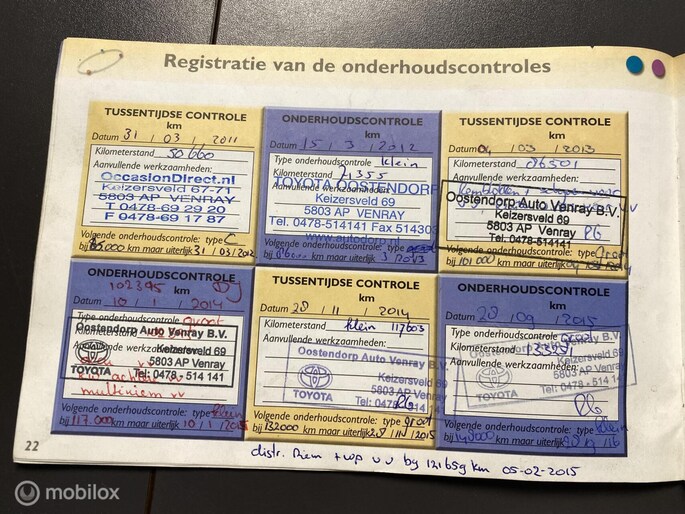 Registratie van de onderhoudscontroles
TUSSENTIJDSE CONTROLE
km
Datum 31 / 03 / 2011
Kilometerstand 56660
Aanvullende werkzaamheden:
OccasionDirect.nl
Keizersveld 67-71
5803 AP VENRAY
T 0478-69 29 20
F 0478-69 17 87
Volgende onderhoudscontrole: type C
bij 85.000 km maar uiterlijk 31 / 03 / 2012
ONDERHOUDSCONTROLE
km
Datum 15 / 3 / 2012
Type onderhoudscontrole klein
Kilometerstand 71355
Aanvullende werkzaamheden:
TOYOTA OOSTENDORP
Keizersveld 69
5803 AP VENRAY
Tel. 0478-514141 Fax 514303
www.autodorp
Volgende onderhoudscontrole: type
bij km maar uiterlijk 3 / 2013
TUSSENTIJDSE CONTROLE
km
Datum 04 / 03 / 2013
Kilometerstand 86501
Aanvullende werkzaamheden:
Oostendorp Auto Venray B.V.
Keizersveld 69
5803 AP Venray
Tel. 0478-514141
Volgende onderhoudscontrole: type Groot
bij 101000 km maar uiterlijk
ONDERHOUDSCONTROLE
102395
Datum 10 / 1 / 2014
Type onderhoudscontrole groot
Kilometerstand
Oostendorp Auto Venray B.V.
Aanvullende werkzaamheden:
Keizersveld 69
5803 AP Venray
TOYOTA Tel: 0478 - 514 141
multiriem vv
Volgende onderhoudscontrole: type klein
bij 117.000 km maar uiterlijk 10 / 1 / 2015
TUSSENTIJDSE CONTROLE
km
Datum 28 / 11 / 2014
Kilometerstand klein 117603
Aanvullende werkzaamheden:
Oostendorp Auto Venray B.V.
Keizersveld 69
5803 AP Venray
TOYOTA Tel: 0478-514 141
Volgende onderhoudscontrole: type groot
bij 132000 km maar uiterlijk 28 / 11 / 2015
ONDERHOUDSCONTROLE
km
Datum 28 / 09 / 2015
Type onderhoudscontrole groot
Kilometerstand
Aanvullende werkzaamheden:
Oostendorp Auto Venray B.V.
Keizersveld 69
5803 AP Venray
TOYOTA Tel: 0478 - 514 141
Volgende onderhoudscontrole: type klein
bij km maar uiterlijk
22
distr. Riem + wp vv by 121659 km 05-02-2015
mobilox